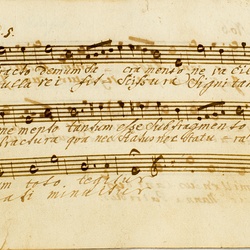 5.
racto demum Sa - cramento ne va cil
ulla rei fit Scissura Signi tan
me mento tantum esse Sub fragmento
fractura qua nec Status nec Statu - ra
m toto tegitur